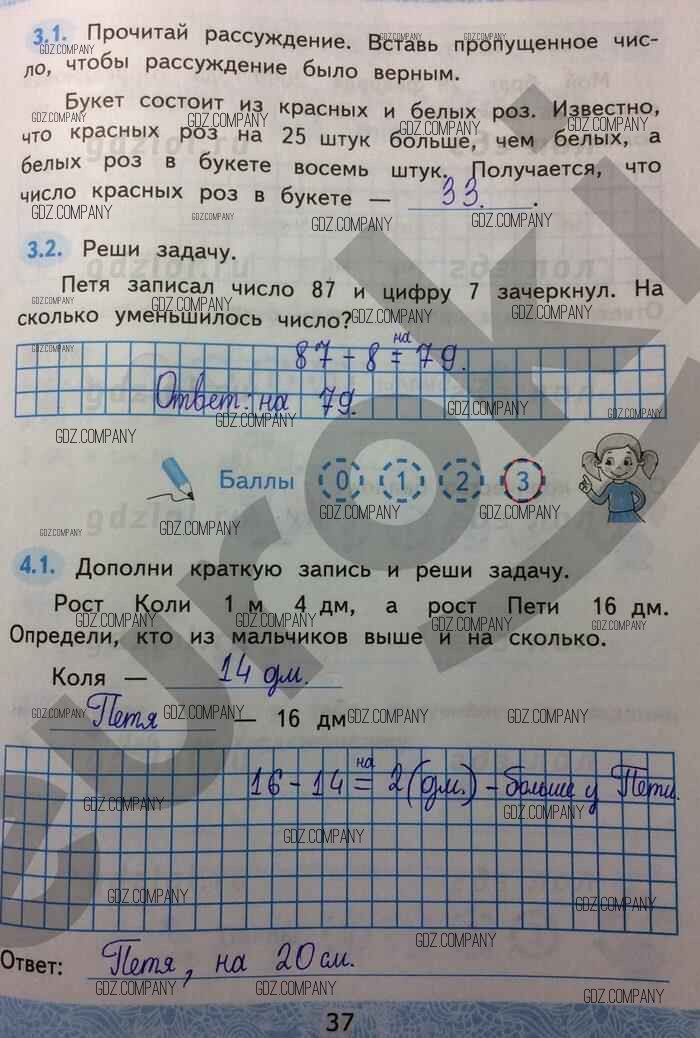 3.1. Прочитай рассуждение. Вставь пропущенное чис-
ло, чтобы рассуждение было верным.
Букет состоит из красных и белых роз. Известно,
что красных роз на 25 штук больше, чем белых, а
белых роз в букете восемь штук. Получается, что
число красных роз в букете — 33.
3.2. Реши задачу.
Петя записал число 87 и цифру 7 зачеркнул. На
сколько уменьшилось число?
87 - 8 = на 79.
Ответ: на 79.
Баллы 0 1 2 3
4.1. Дополни краткую запись и реши задачу.
Рост Коли 1 м 4 дм, а рост Пети 16 дм.
Определи, кто из мальчиков выше и на сколько.
Коля — 14 дм.
Петя — 16 дм
16 - 14 = на 2 (дм.) - больше у Пети.
Ответ: Петя, на 20 см.
37
GDZ.COMPANY
euroki